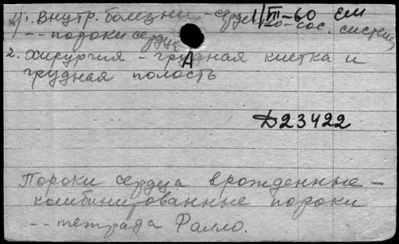 1. Внутр. болезни - сердечно-сос. система
1/VI-60 ем
-- пороки сердца
2. хирургия - грудная клетка и
грудная полость
А
Д23422
Пороки сердца врожденные -
комбинированные пороки
-- тетрада Фалло.